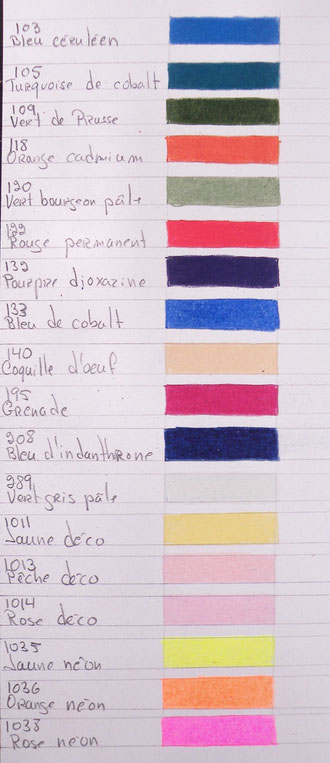 103
Bleu céruléen
105
Turquoise de cobalt
109
Vert de Prusse
118
Orange cadmium
190
Vert bourgeon pâle
122
Rouge permanent
132
Pourpre dioxazine
133
Bleu de cobalt
140
Coquille d'oeuf
195
Grenade
208
Bleu d'indanthrone
289
Vert gris pâle
1011
Jaune déco
1013
Pêche déco
1014
Rose déco
1035
Jaune néon
1036
Orange néon
1038
Rose néon